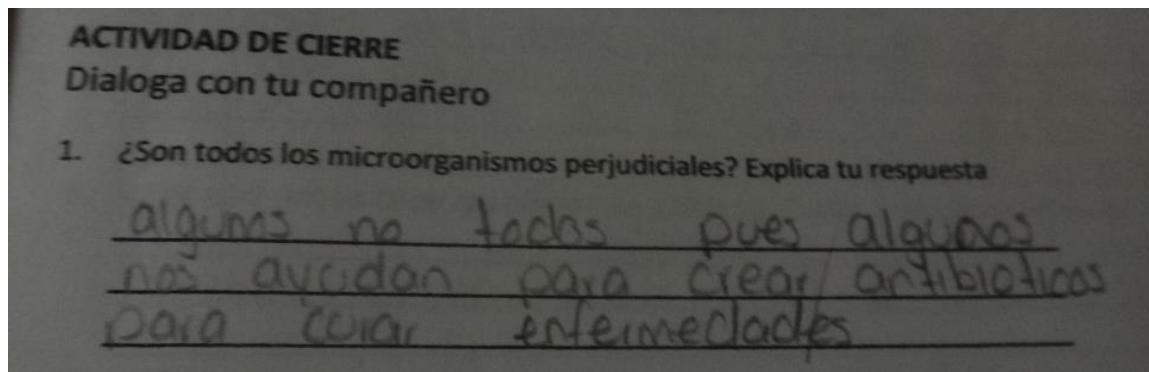 ACTIVIDAD DE CIERRE
Dialoga con tu compañero
1. ¿Son todos los microorganismos perjudiciales? Explica tu respuesta
algunos no todos pues algunos
nos ayudan para crear antibioticos
para curar enfermedades